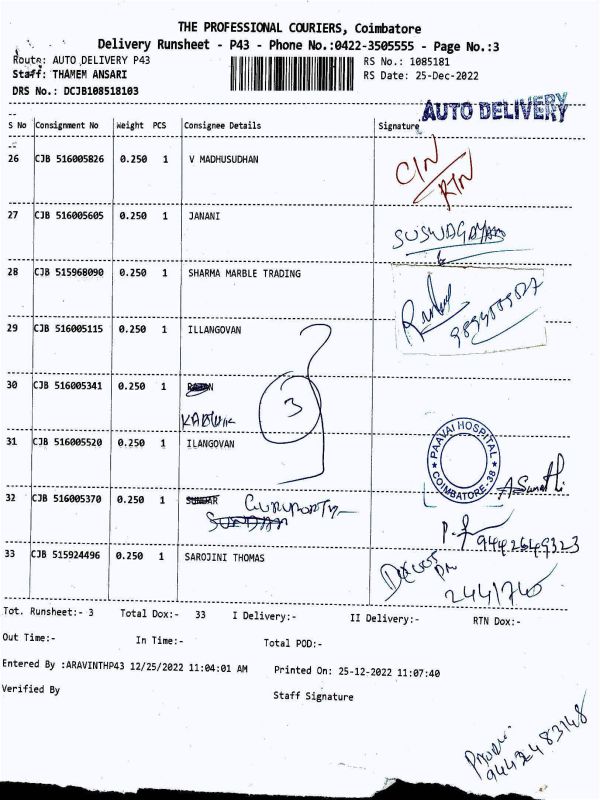 THE PROFESSIONAL COURIERS, Coimbatore
Delivery Runsheet - P43 - Phone No.:0422-3505555 - Page No.:3
Route: AUTO DELIVERY P43
RS No.: 1085181
Staff: THAMEM ANSARI
RS Date: 25-Dec-2022
DRS No.: DCJB108518103
AUTO DELIVERY
S No Consignment No Weight PCS Consignee Details Signature
26 CJB 516005826 0.250 1 V MADHUSUDHAN
C/N
RTN
27 CJB 516005605 0.250 1 JANANI
SUSWAGATAM
28 CJB 515968090 0.250 1 SHARMA MARBLE TRADING
29 CJB 516005115 0.250 1 ILLANGOVAN
30 CJB 516005341 0.250 1
3
31 CJB 516005520 0.250 1 ILANGOVAN
PAAVAI HOSPITAL
COIMBATORE-38
32 CJB 516005370 0.250 1 SUNDAR
33 CJB 515924496 0.250 1 SAROJINI THOMAS
9442649323
Tot. Runsheet:- 3 Total Dox:- 33 I Delivery:- II Delivery:- RTN Dox:-
Out Time:- In Time:- Total POD:-
Entered By :ARAVINTHP43 12/25/2022 11:04:01 AM Printed On: 25-12-2022 11:07:40
Verified By Staff Signature